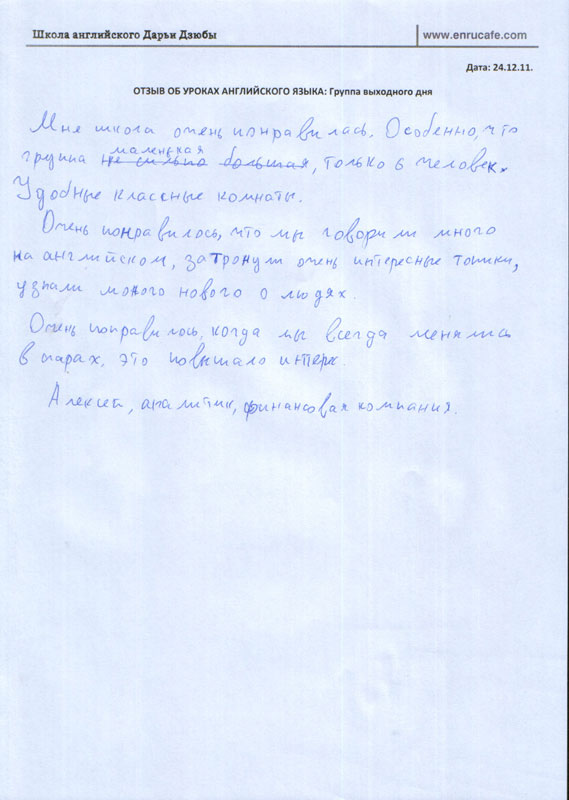 Школа английского Дарьи Дзюбы
www.enrucafe.com
Дата: 24.12.11.
ОТЗЫВ ОБ УРОКАХ АНГЛИЙСКОГО ЯЗЫКА: Группа выходного дня
Мне школа очень понравилась. Особенно, что
маленькая
группа не сильно большая, только 6 человек.
Удобные классные комнаты.
Очень понравилось, что мы говорили много
на английском, затронули очень интересные топики,
узнали много нового о людях.
Очень понравилось, когда мы всегда менялись
в парах, это повышало интерес.
Алексей, аналитик, финансовая компания.